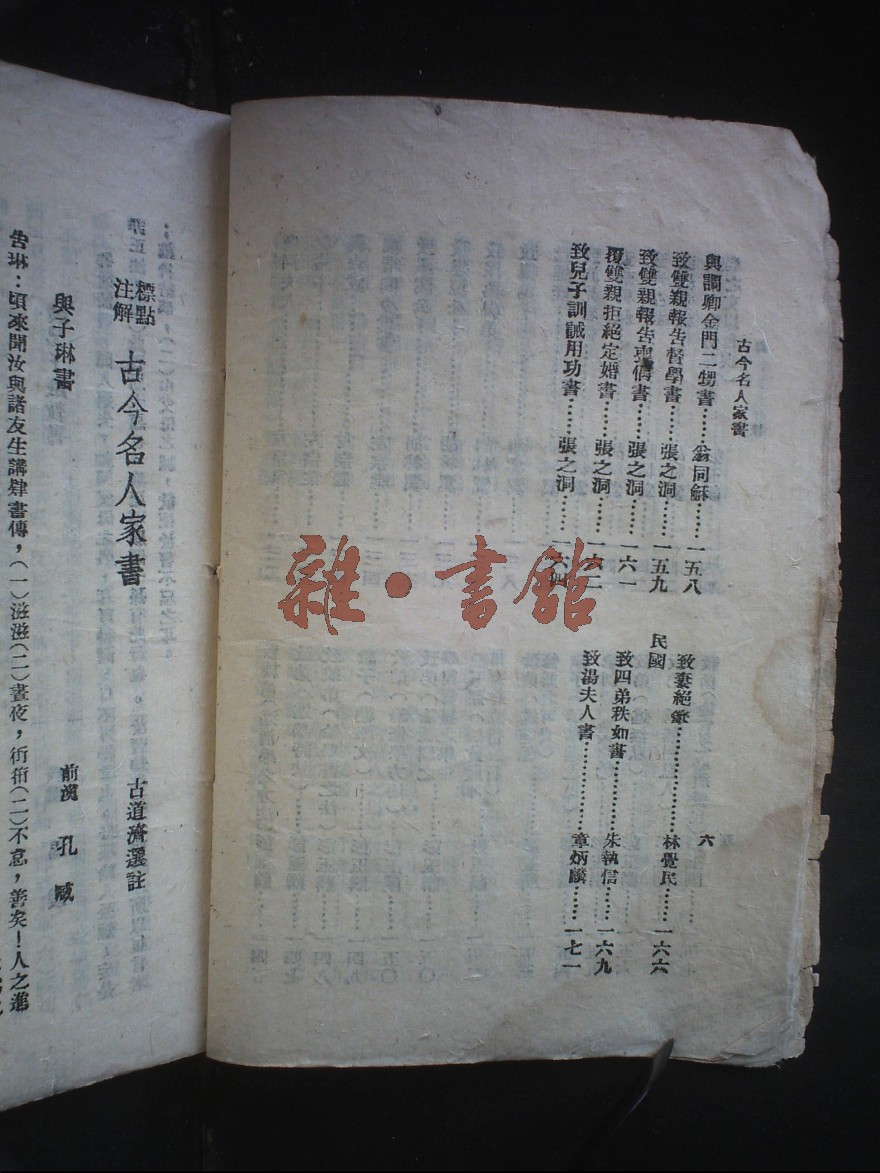 古今名人家書
與調卿金門二甥書……翁同龢……一五八
致雙親報告督學書……張之洞……一五九
致雙親報告喪偶書……張之洞……一六一
覆雙親拒絕定婚書……張之洞……一六二
致兒子訓誡用功書……張之洞……一六四
民國
致妻絕筆……林覺民……一六六
致四弟秩如書……朱執信……一六九
致湯夫人書……章炳麟……一七一
六
雜·書館
標點
注解
古今名人家書
古道濟選註
與子琳書
前漢 孔臧
告琳：頃來聞汝與諸友生講肆書傳，(一)滋滋(二)晝夜，衎衎(二)不怠，善矣！人之進